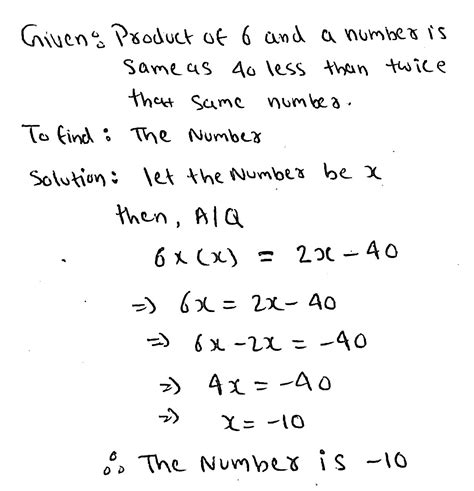 Given: Product of 6 and a number is
same as 40 less than twice
that same number.
To find: The Number
Solution: let the Number be x
then, A/Q
6 × (x) = 2x - 40
⇒ 6x = 2x - 40
⇒ 6x - 2x = -40
⇒ 4x = -40
⇒ x = -10
∴ The Number is -10